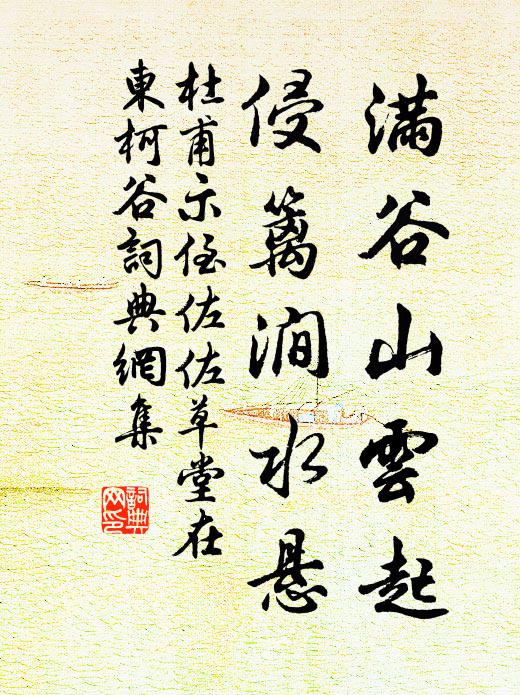 滿谷山雲起
侵籬澗水懸
杜甫示侄佐佐草堂在
東柯谷詞典網集
詞典
网印